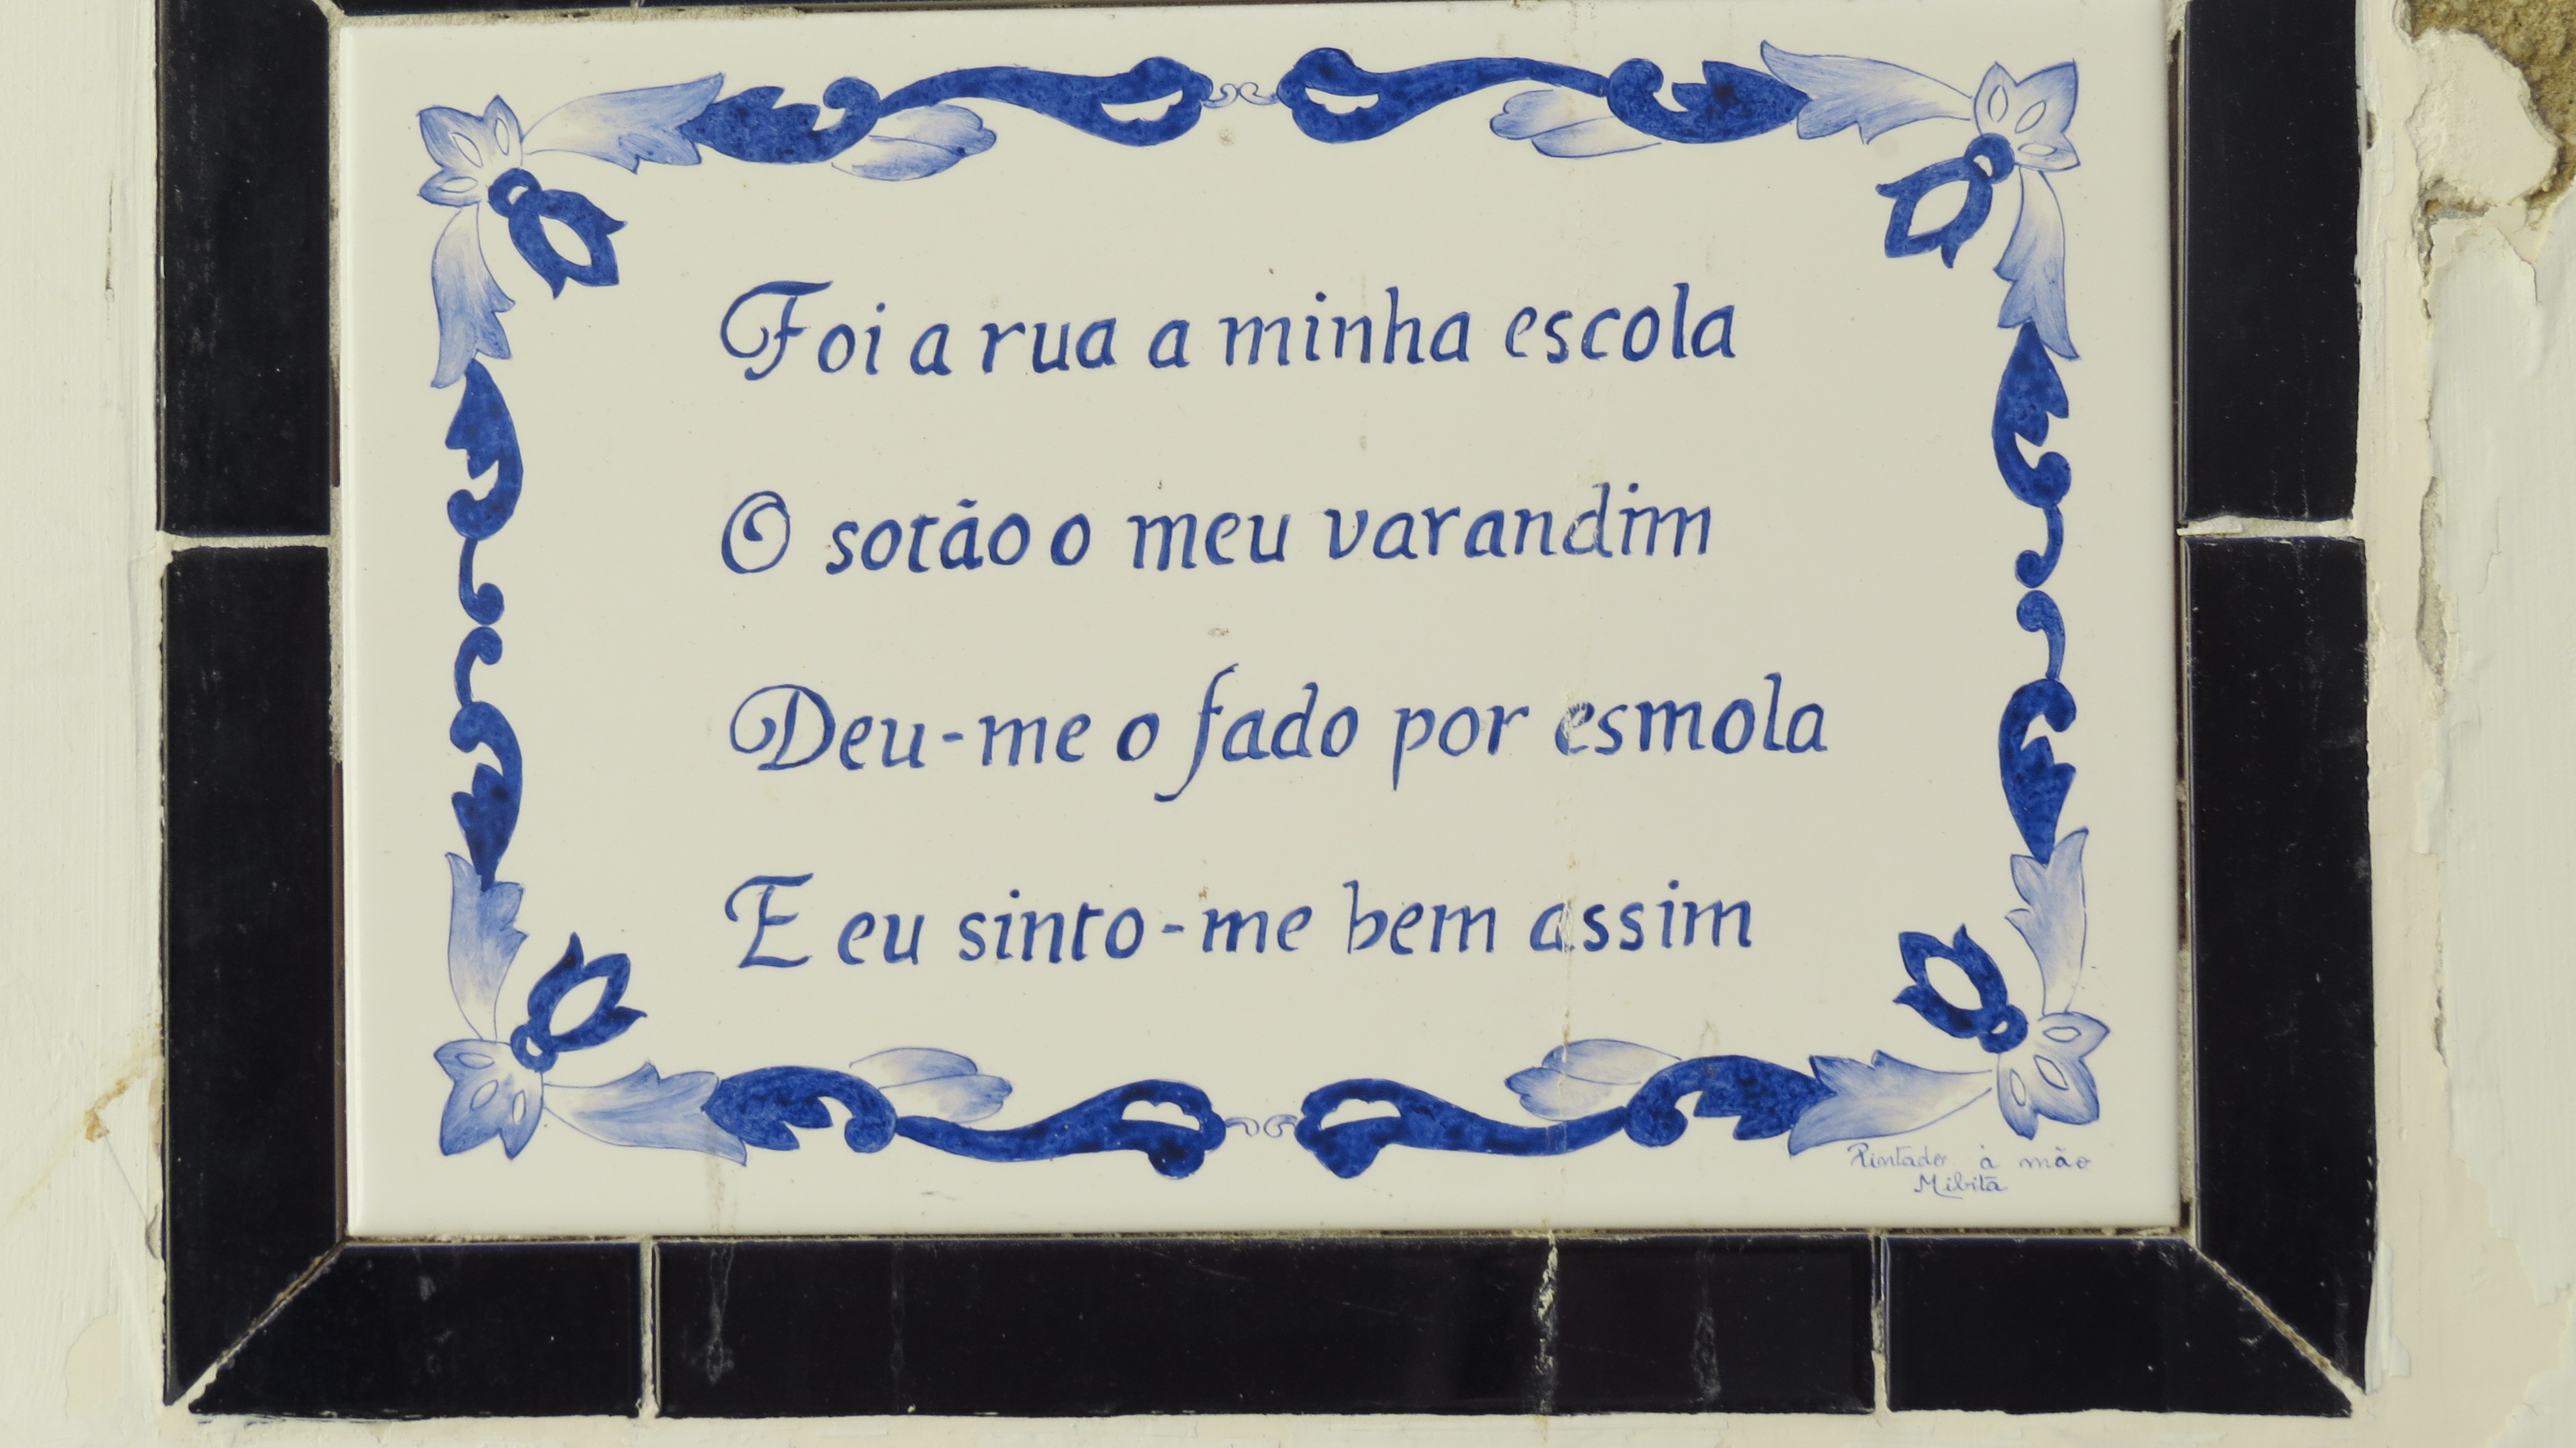 Foi a rua a minha escola
O sotão o meu varandim
Deu-me o fado por esmola
E eu sinto-me bem assim
Pintado à mão
Mibita